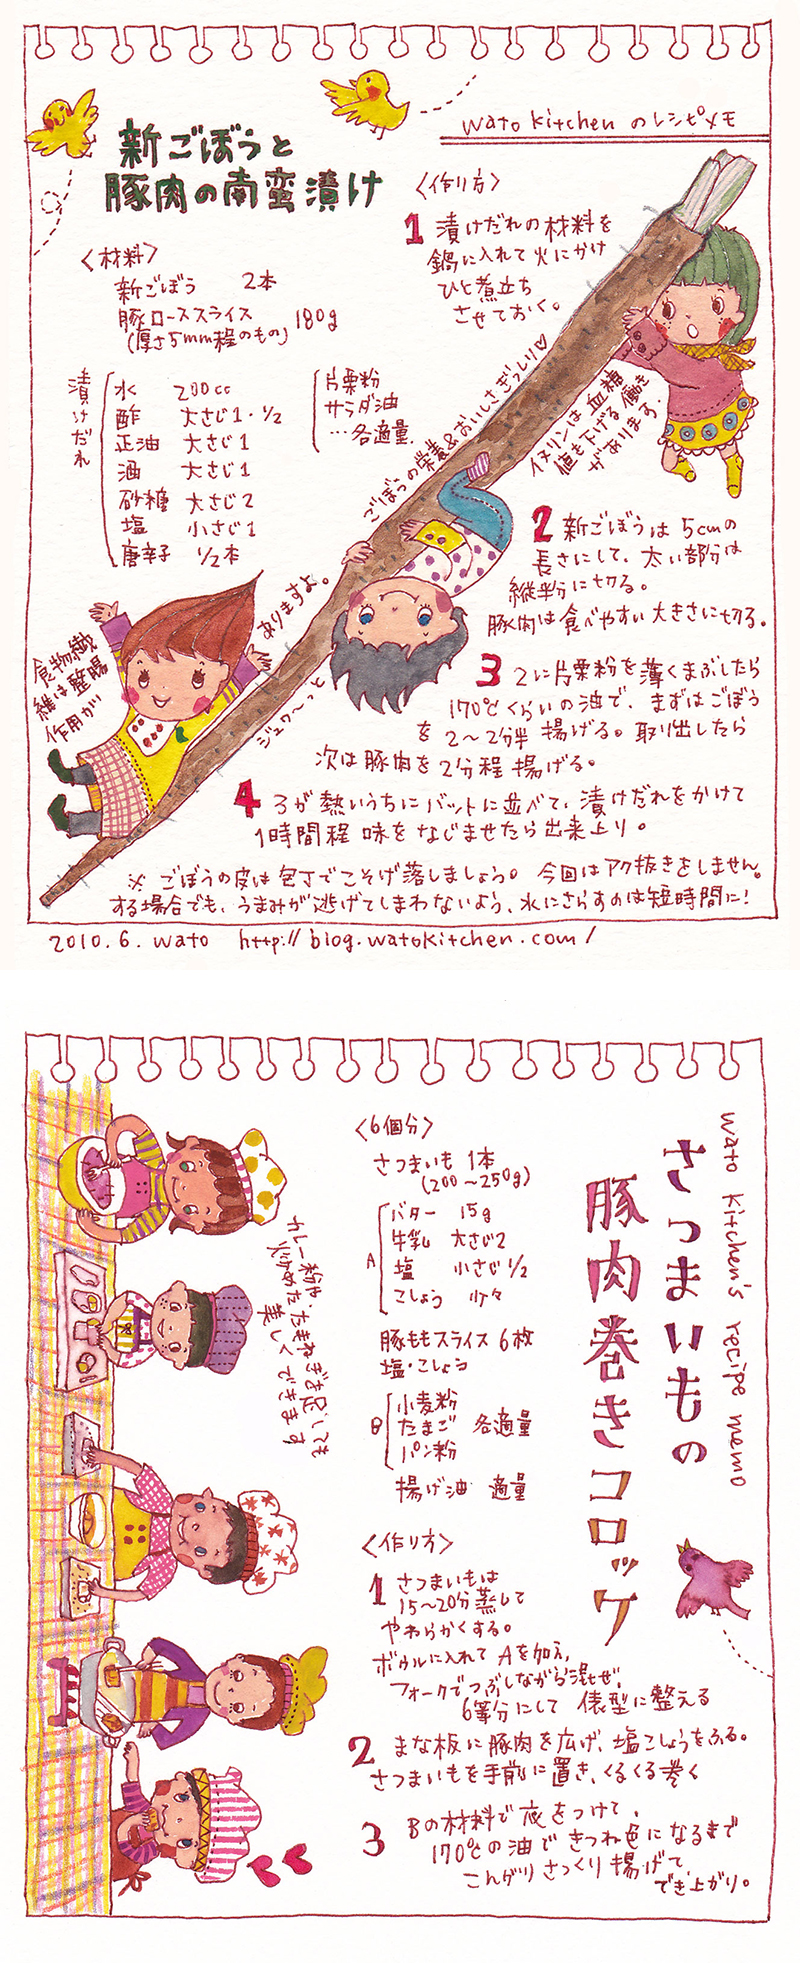 wato kitchen のレシピメモ
新ごぼうと
豚肉の南蛮漬け
〈材料〉
新ごぼう 2本
豚ローススライス 180g
(厚さ5mm程のもの)
漬けだれ
水 200cc
酢 大さじ1・1/2
正油 大さじ1
酒 大さじ1
砂糖 大さじ2
塩 小さじ1
唐辛子 1/2本
片栗粉
サラダ油
…各適量
〈作り方〉
1 漬けだれの材料を
鍋に入れて火にかけ
ひと煮立ち
させておく。
2 新ごぼうは5cmの
長さにして、太い部分は
縦半分に切る。
豚肉は食べやすい大きさに切る。
3 2に片栗粉を薄くまぶしたら
170℃くらいの油で、まずはごぼう
を2〜2分半 揚げる。取り出したら
次は豚肉を2分程揚げる。
4 3が熱いうちにバットに並べて、漬けだれをかけて
1時間程 味をなじませたら出来上り。
※ ごぼうの皮は包丁でこそげ落しましょう。今回はアク抜きをしません。
する場合でも、うまみが逃げてしまわないよう、水にさらすのは短時間に!
ごぼうの栄養&おいしさぎっしり♡
イヌリンは血糖
値を下げる働き
があります
食物繊
維は整腸
作用が
ありますよ。
ジュワ〜っと
2010.6. wato http://blog.watokitchen.com/
wato kitchen's recipe memo
さつまいもの
豚肉巻きコロッケ
〈6個分〉
さつまいも 1本
(200〜250g)
A
バター 15g
牛乳 大さじ2
塩 小さじ1/2
こしょう 少々
豚ももスライス 6枚
塩・こしょう
B
小麦粉
たまご 各適量
パン粉
揚げ油 適量
〈作り方〉
1 さつまいもは
15〜20分蒸して
やわらかくする。
ボウルに入れてAを加え、
フォークでつぶしながら混ぜ、
6等分にして 俵型に整える
2 まな板に豚肉を広げ、塩こしょうをふる。
さつまいもを手前に置き、くるくる巻く
3 Bの材料で衣をつけて、
170℃の油できつね色になるまで
こんがりさっくり揚げて、
でき上がり。
カレー粉や、
炒めたたまねぎを足しても
美しくできます